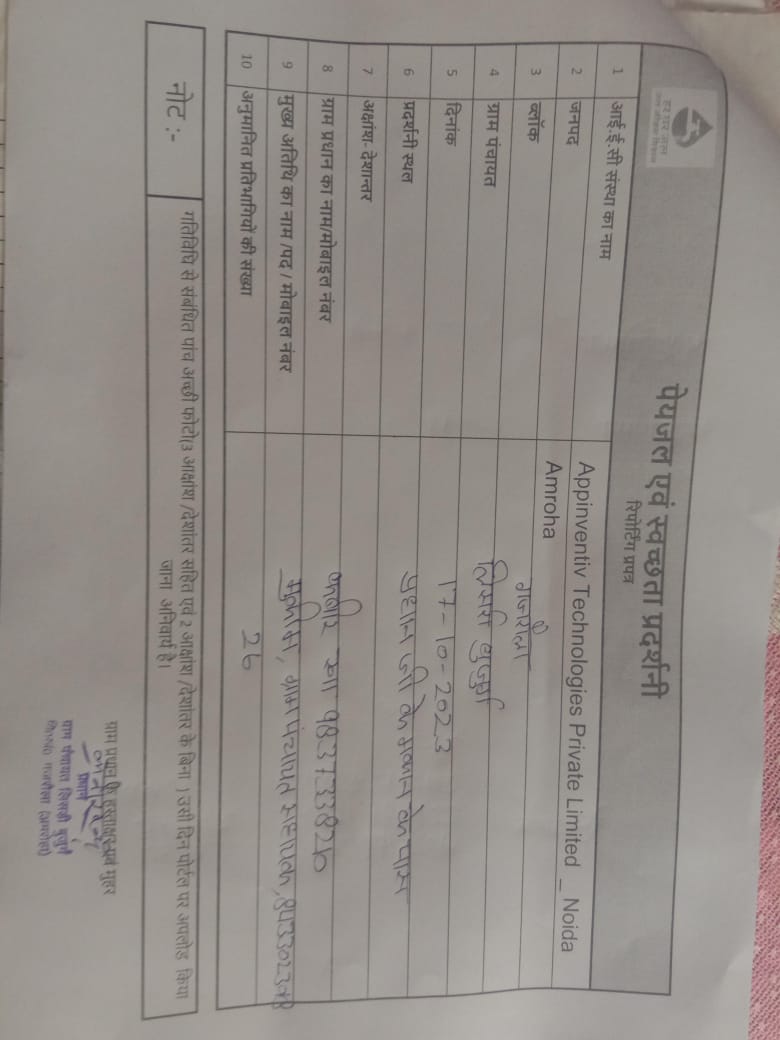 हर घर जल
जल जीवन मिशन
पेयजल एवं स्वच्छता प्रदर्शनी
रिपोर्टिंग प्रपत्र
1 आई.ई.सी संस्था का नाम Appinventiv Technologies Private Limited _ Noida
2 जनपद Amroha
3 ब्लॉक गजरौला
4 ग्राम पंचायत लिसडी बुजुर्ग
5 दिनांक 17-10-2023
6 प्रदर्शनी स्थल प्रधान जी के मकान के पास
7 अक्षांश- देशान्तर
8 ग्राम प्रधान का नाम/मोबाइल नंबर 9837333826
9 मुख्य अतिथि का नाम /पद / मोबाइल नंबर ग्राम पंचायत सहायक,
10 अनुमानित प्रतिभागियों की संख्या 26
नोट :- गतिविधि से संबंधित पांच अच्छी फोटो(3 आक्षांश /देशांतर सहित एवं 2 आक्षांश /देशांतर के बिना ) उसी दिन पोर्टल पर अपलोड किया
जाना अनिवार्य है।
ग्राम प्रधान के हस्ताक्षर एवं मुहर
प्रधान
ग्राम पंचायत लिसडी बुजुर्ग
गजरौला (अमरोहा)